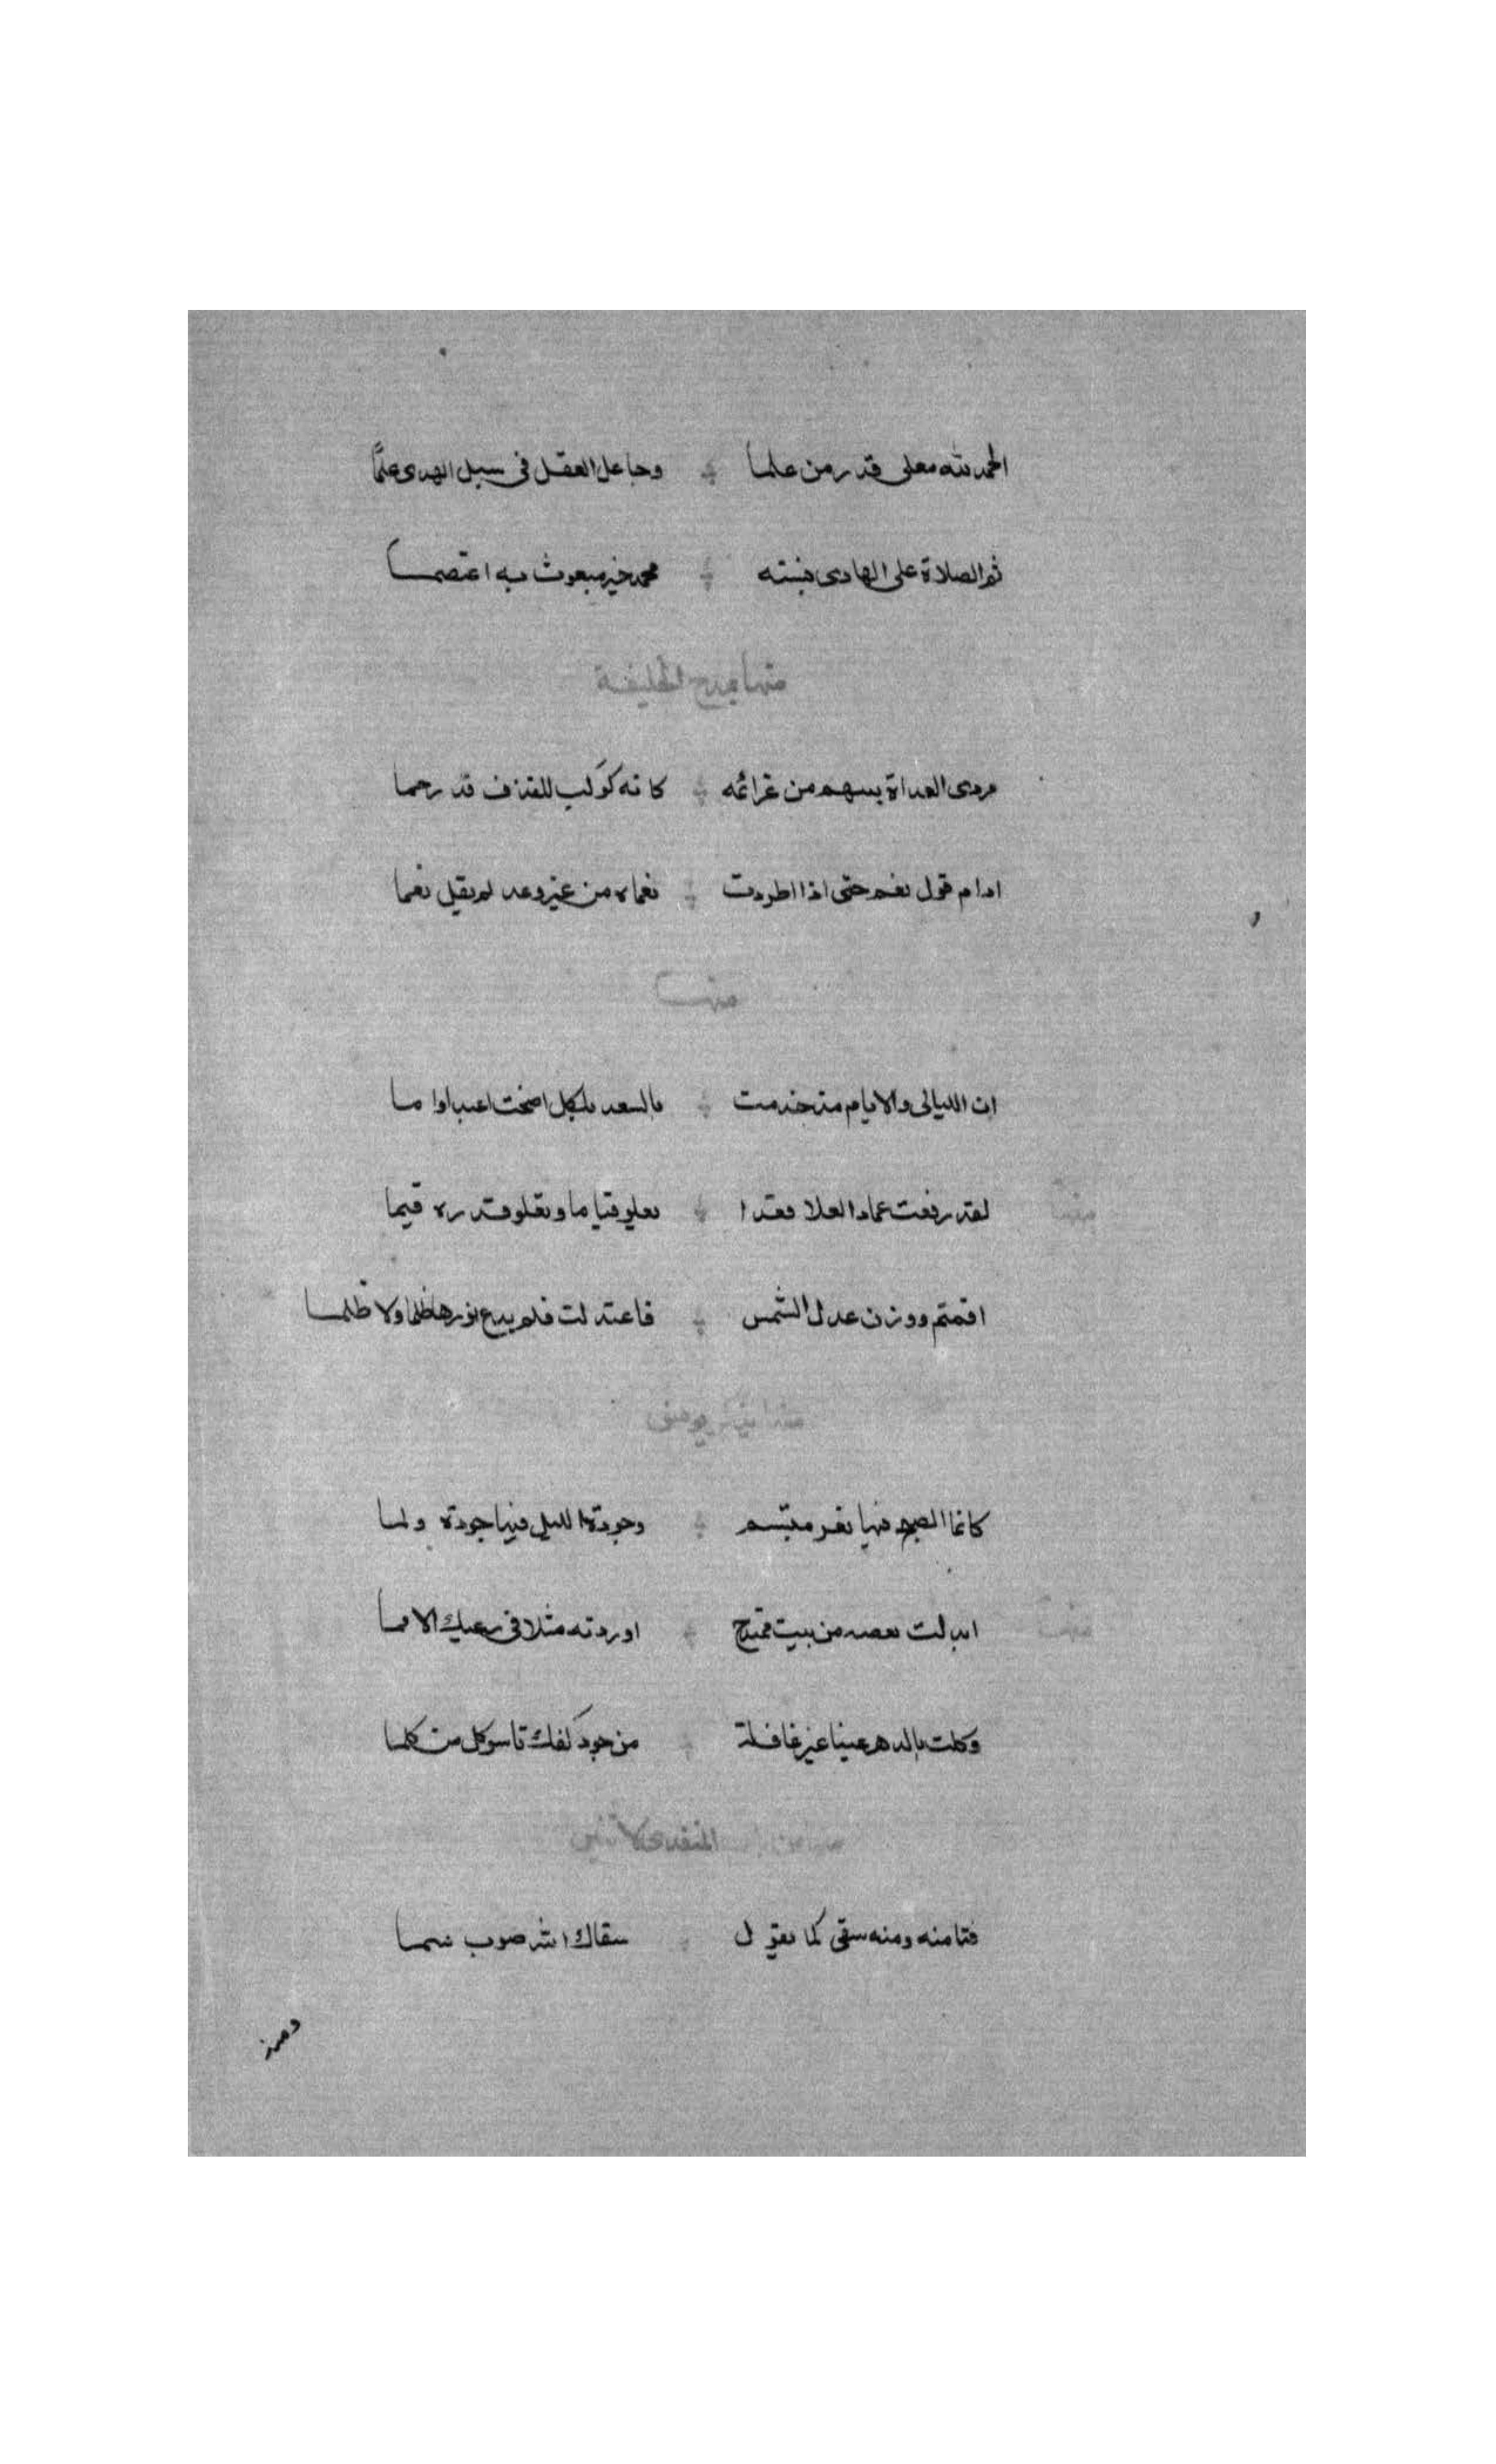 الحمد لله معلى قدر من علما وجاعل العقل فى سبل الهدى علما
ثم الصلاة على الهادى بسنته محمد خير مبعوث به اعتصما
منها يمدح الخليفة
مردى العداة بسهم من عزائمه كانه كوكب للقذف قد رجما
ادام قول نعم حتى اذا اطردت نعماه من غير وعد لم يقل نعما
منها
ان الليالى والايام مذ خدمت بالسعد اضحت اعبدا واما
منها
لقد رفعت عماد العلا فغدا يعلو قياما ويغلو قدره قيما
اقمتم ووزن عدل الشمس فاعتدلت فلم يدع نورها ظلما ولا ظلما
كانما الصبح منها ثغر مبتسم الليل فيها
منها
ابدلت من بيت ممتدح اوردته مثلا فى رعيك الامما
وكلت بالدهر عينا غير غافلة من جود كفك تاسو كل من كلما
فتا منه ومنه سقى كما يقول سقاك الله صوب سما
ومن